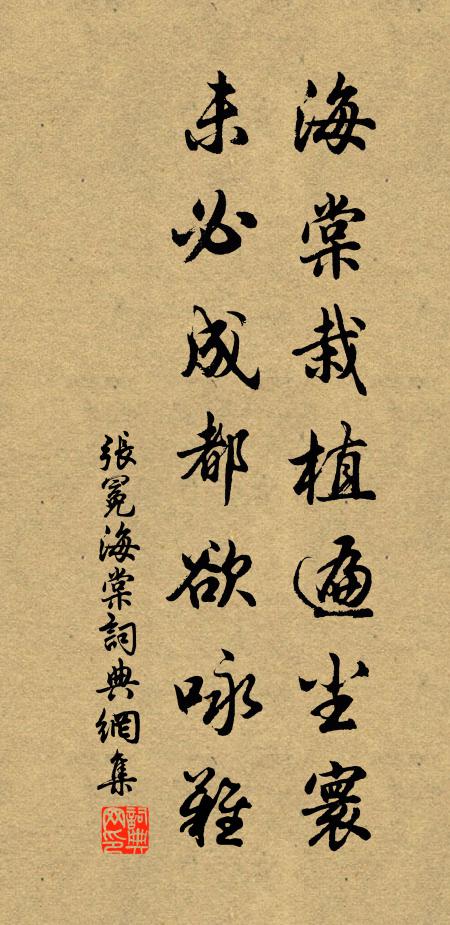 海棠栽植遍尘寰
未必成都欲咏難
張冕海棠詞典網集
詞典
网印